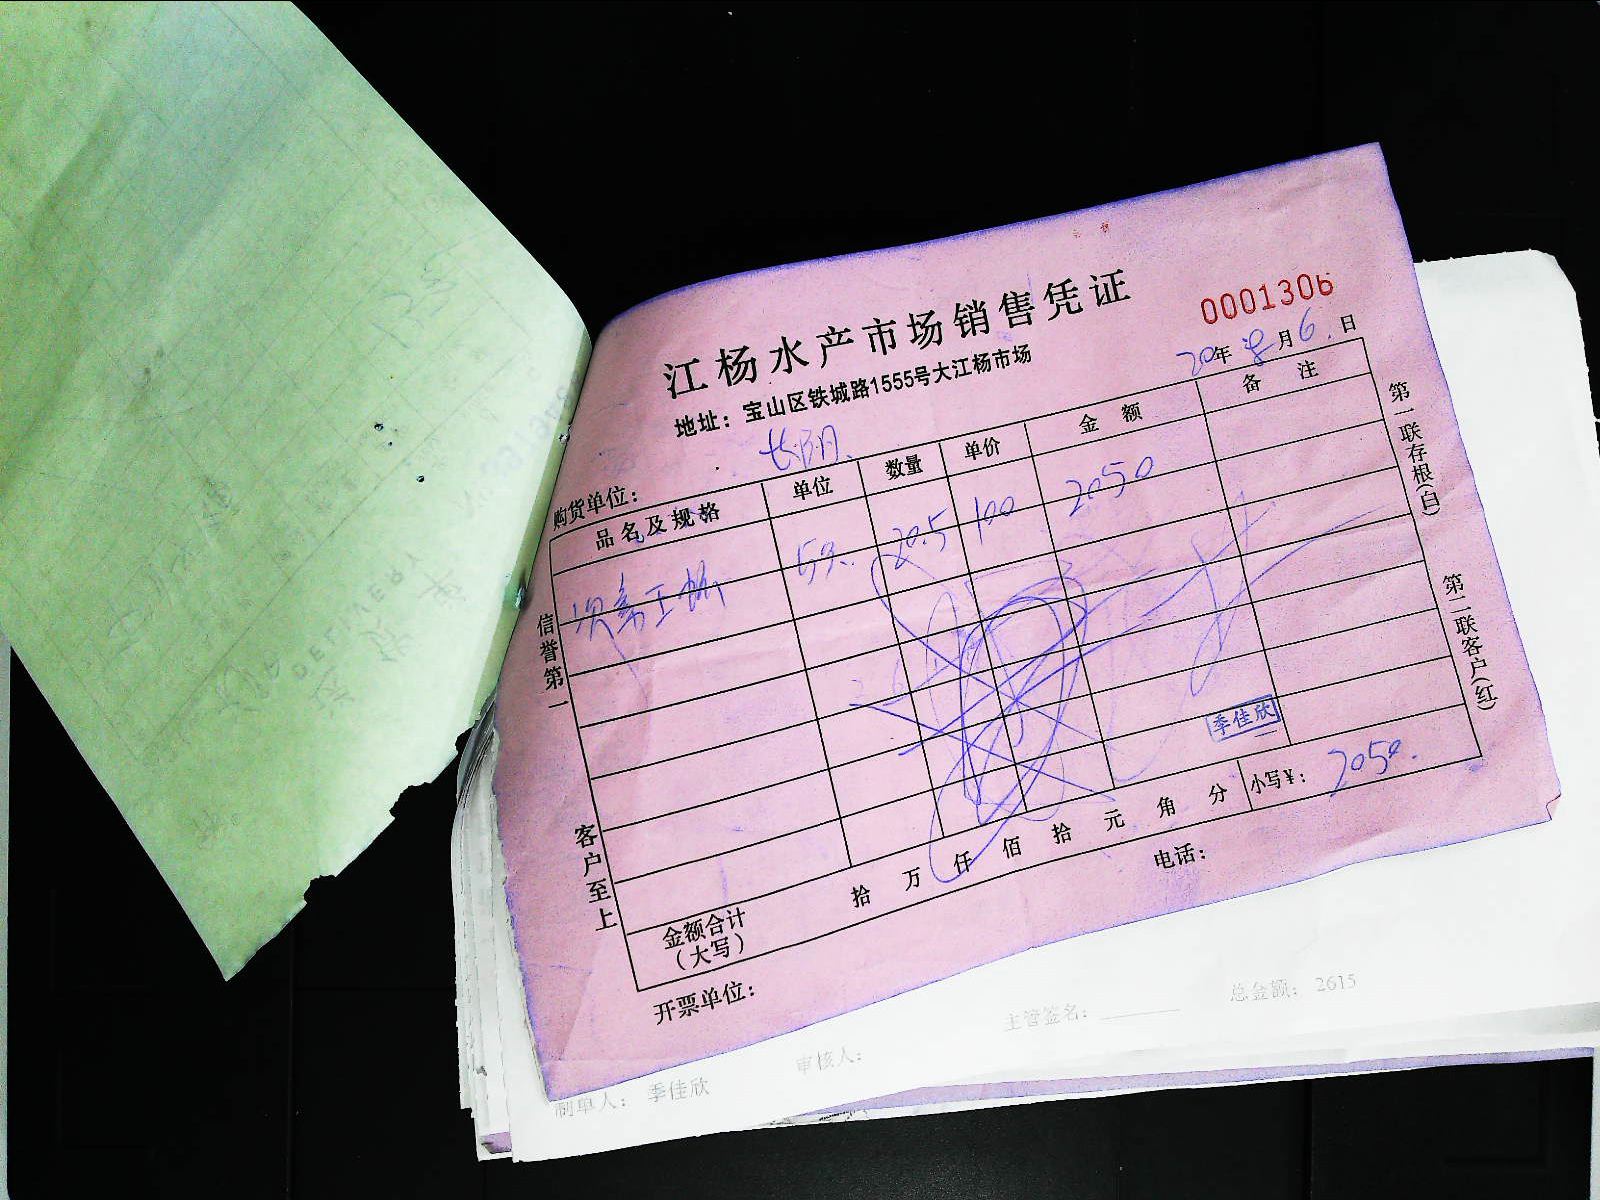 江杨水产市场销售凭证
0001306
地址：宝山区铁城路1555号大江杨市场
20年 8月 6日
购货单位：
品名及规格 单位 数量 单价 金额 备注
20.5 100 2050
信誉第一 客户至上
第一联存根(白) 第二联客户(红)
季佳欣
金额合计（大写） 拾 万 仟 佰 拾 元 角 分 小写¥： 2050.
开票单位： 电话：
制单人： 季佳欣 审核人： 主管签名： 总金额： 2615
DELIVERY